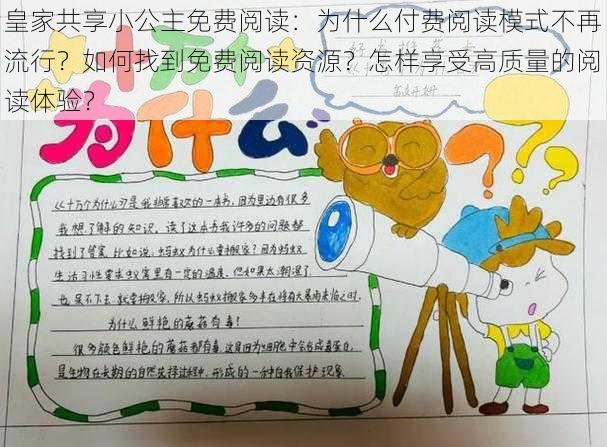 皇家共享小公主免费阅读：为什么付费阅读模式不再
流行？如何找到免费阅读资源？怎样享受高质量的阅
读体验？
十万个
为什么???
《十万个为什么》是我非常喜欢的一本书，因为里边有很多
我想了解的知识，读了这本书我许多的问题都
找到了答案，比如说：蚂蚁为什么要搬家？因为蚂蚁
生活习性要求蚁窝里有一定的温度，但如果太潮湿了
也呆不下去，就要搬家，所以蚂蚁搬家多半在将有大暴雨来临之时.
为什么鲜艳的蘑菇有毒！
很多颜色鲜艳的蘑菇都有毒，这是因为细胞中会合成毒蛋白，
是生物在长期的自然选择过程中，形成的一种自我保护现象